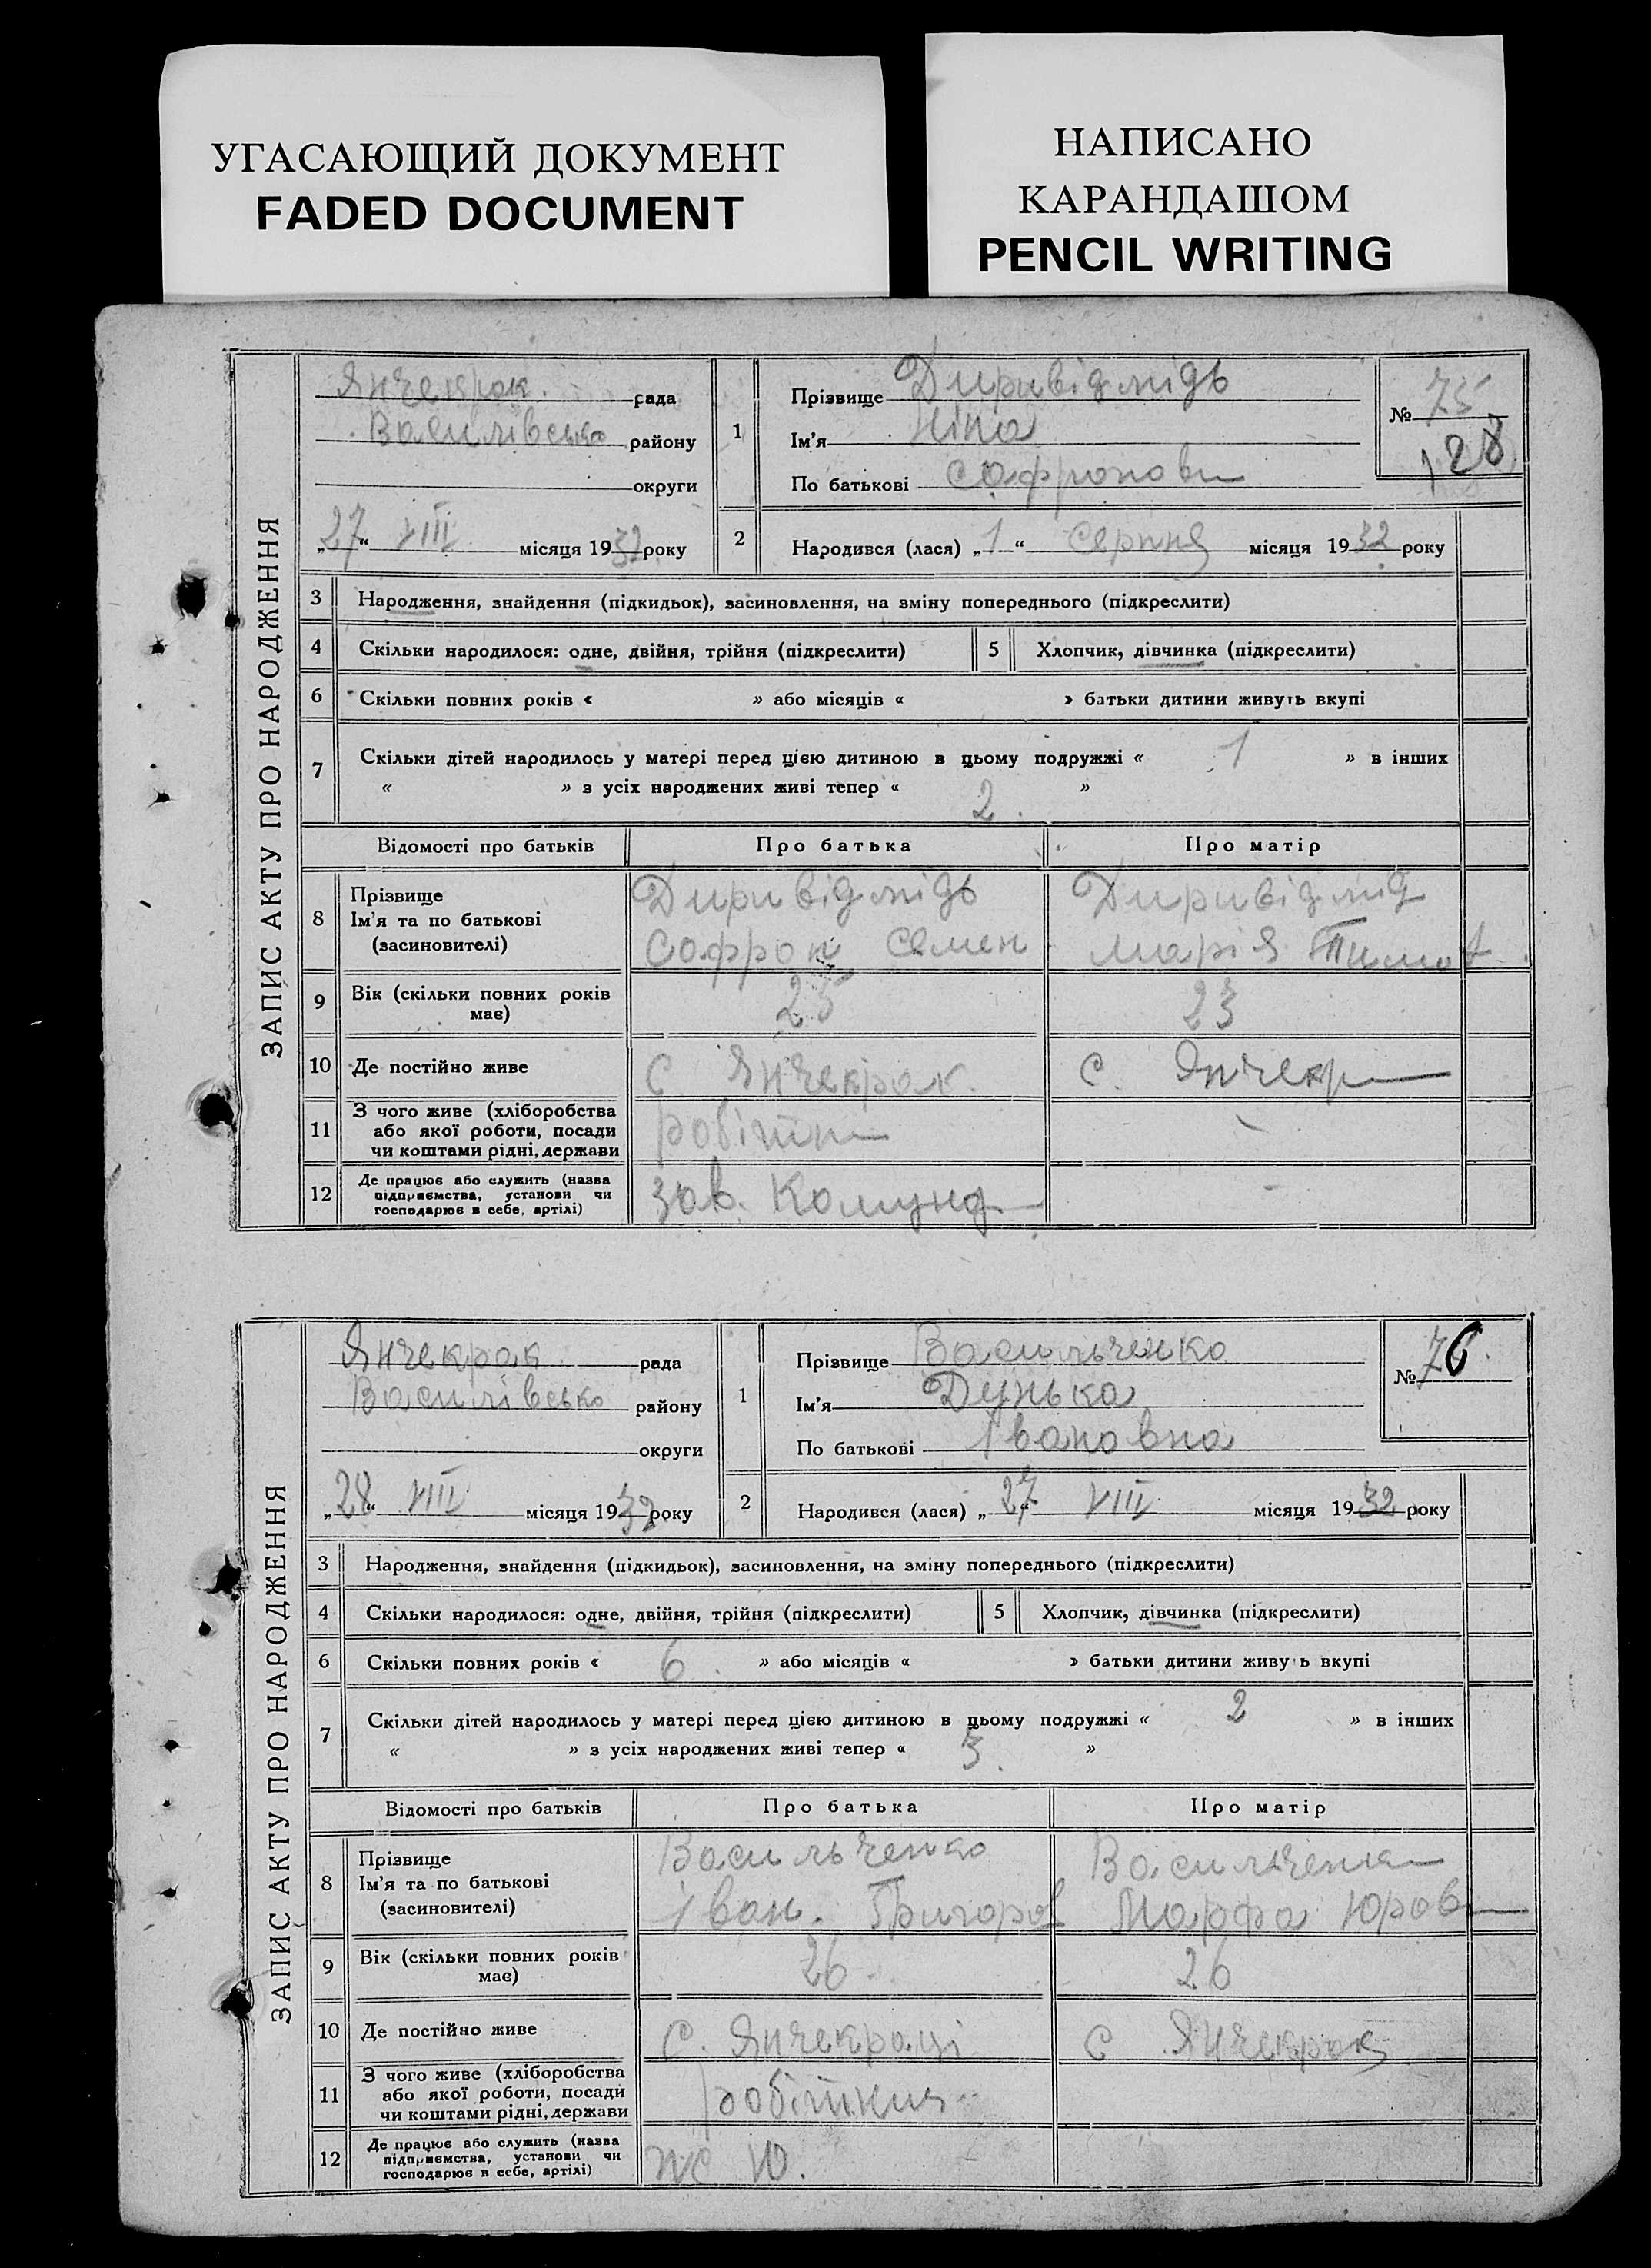 УГАСАЮЩИЙ ДОКУМЕНТ
FADED DOCUMENT
НАПИСАНО
КАРАНДАШОМ
PENCIL WRITING
ЗАПИС АКТУ ПРО НАРОДЖЕННЯ
Янчекрак. рада
Василівсько району
округи
„27“ VIII місяця 1932 року
1 Прізвище Диривідмідь
Ім'я Ніна
По батькові Софронов
№ 75
128
2 Народився (лася) „1“ серпня місяця 1932 року
3 Народження, знайдення (підкидьок), засиновлення, на зміну попереднього (підкреслити)
4 Скільки народилося: одне, двійня, трійня (підкреслити) 5 Хлопчик, дівчинка (підкреслити)
6 Скільки повних років « » або місяців « » батьки дитини живуть вкупі
7 Скільки дітей народилось у матері перед цією дитиною в цьому подружжі « 1 » в інших
« » з усіх народжених живі тепер « 2. »
Відомості про батьків Про батька Про матір
8 Прізвище
Ім'я та по батькові
(засиновителі)
Диривідмідь
Софрон Семен
Диривідмід
Марія Тимоф
9 Вік (скільки повних років
має)
25
23
10 Де постійно живе С Янчекрак. с. Янчекр
11 З чого живе (хліборобства
або якої роботи, посади
чи коштами рідні, держави
робітн
-
12 Де працює або служить (назва
підприємства, установи чи
господарює в себе, артілі)
зав. Комунд
-
ЗАПИС АКТУ ПРО НАРОДЖЕННЯ
Янчекрак рада
Василівсько району
округи
„28“ VIII місяця 1932 року
1 Прізвище Васильченко
Ім'я Дунька
По батькові Івановна
№ 76
2 Народився (лася) „27“ VIII місяця 1932 року
3 Народження, знайдення (підкидьок), засиновлення, на зміну попереднього (підкреслити)
4 Скільки народилося: одне, двійня, трійня (підкреслити) 5 Хлопчик, дівчинка (підкреслити)
6 Скільки повних років « 6. » або місяців « » батьки дитини живуть вкупі
7 Скільки дітей народилось у матері перед цією дитиною в цьому подружжі « 2 » в інших
« » з усіх народжених живі тепер « 3. »
Відомості про батьків Про батька Про матір
8 Прізвище
Ім'я та по батькові
(засиновителі)
Васильченко
Іван. Григоров
Васильченк
Марфа Юров
9 Вік (скільки повних років
має)
26.
26
10 Де постійно живе С. Янчекраці С Янчекрак
11 З чого живе (хліборобства
або якої роботи, посади
чи коштами рідні, держави
робітник
12 Де працює або служить (назва
підприємства, установи чи
господарює в себе, артілі)